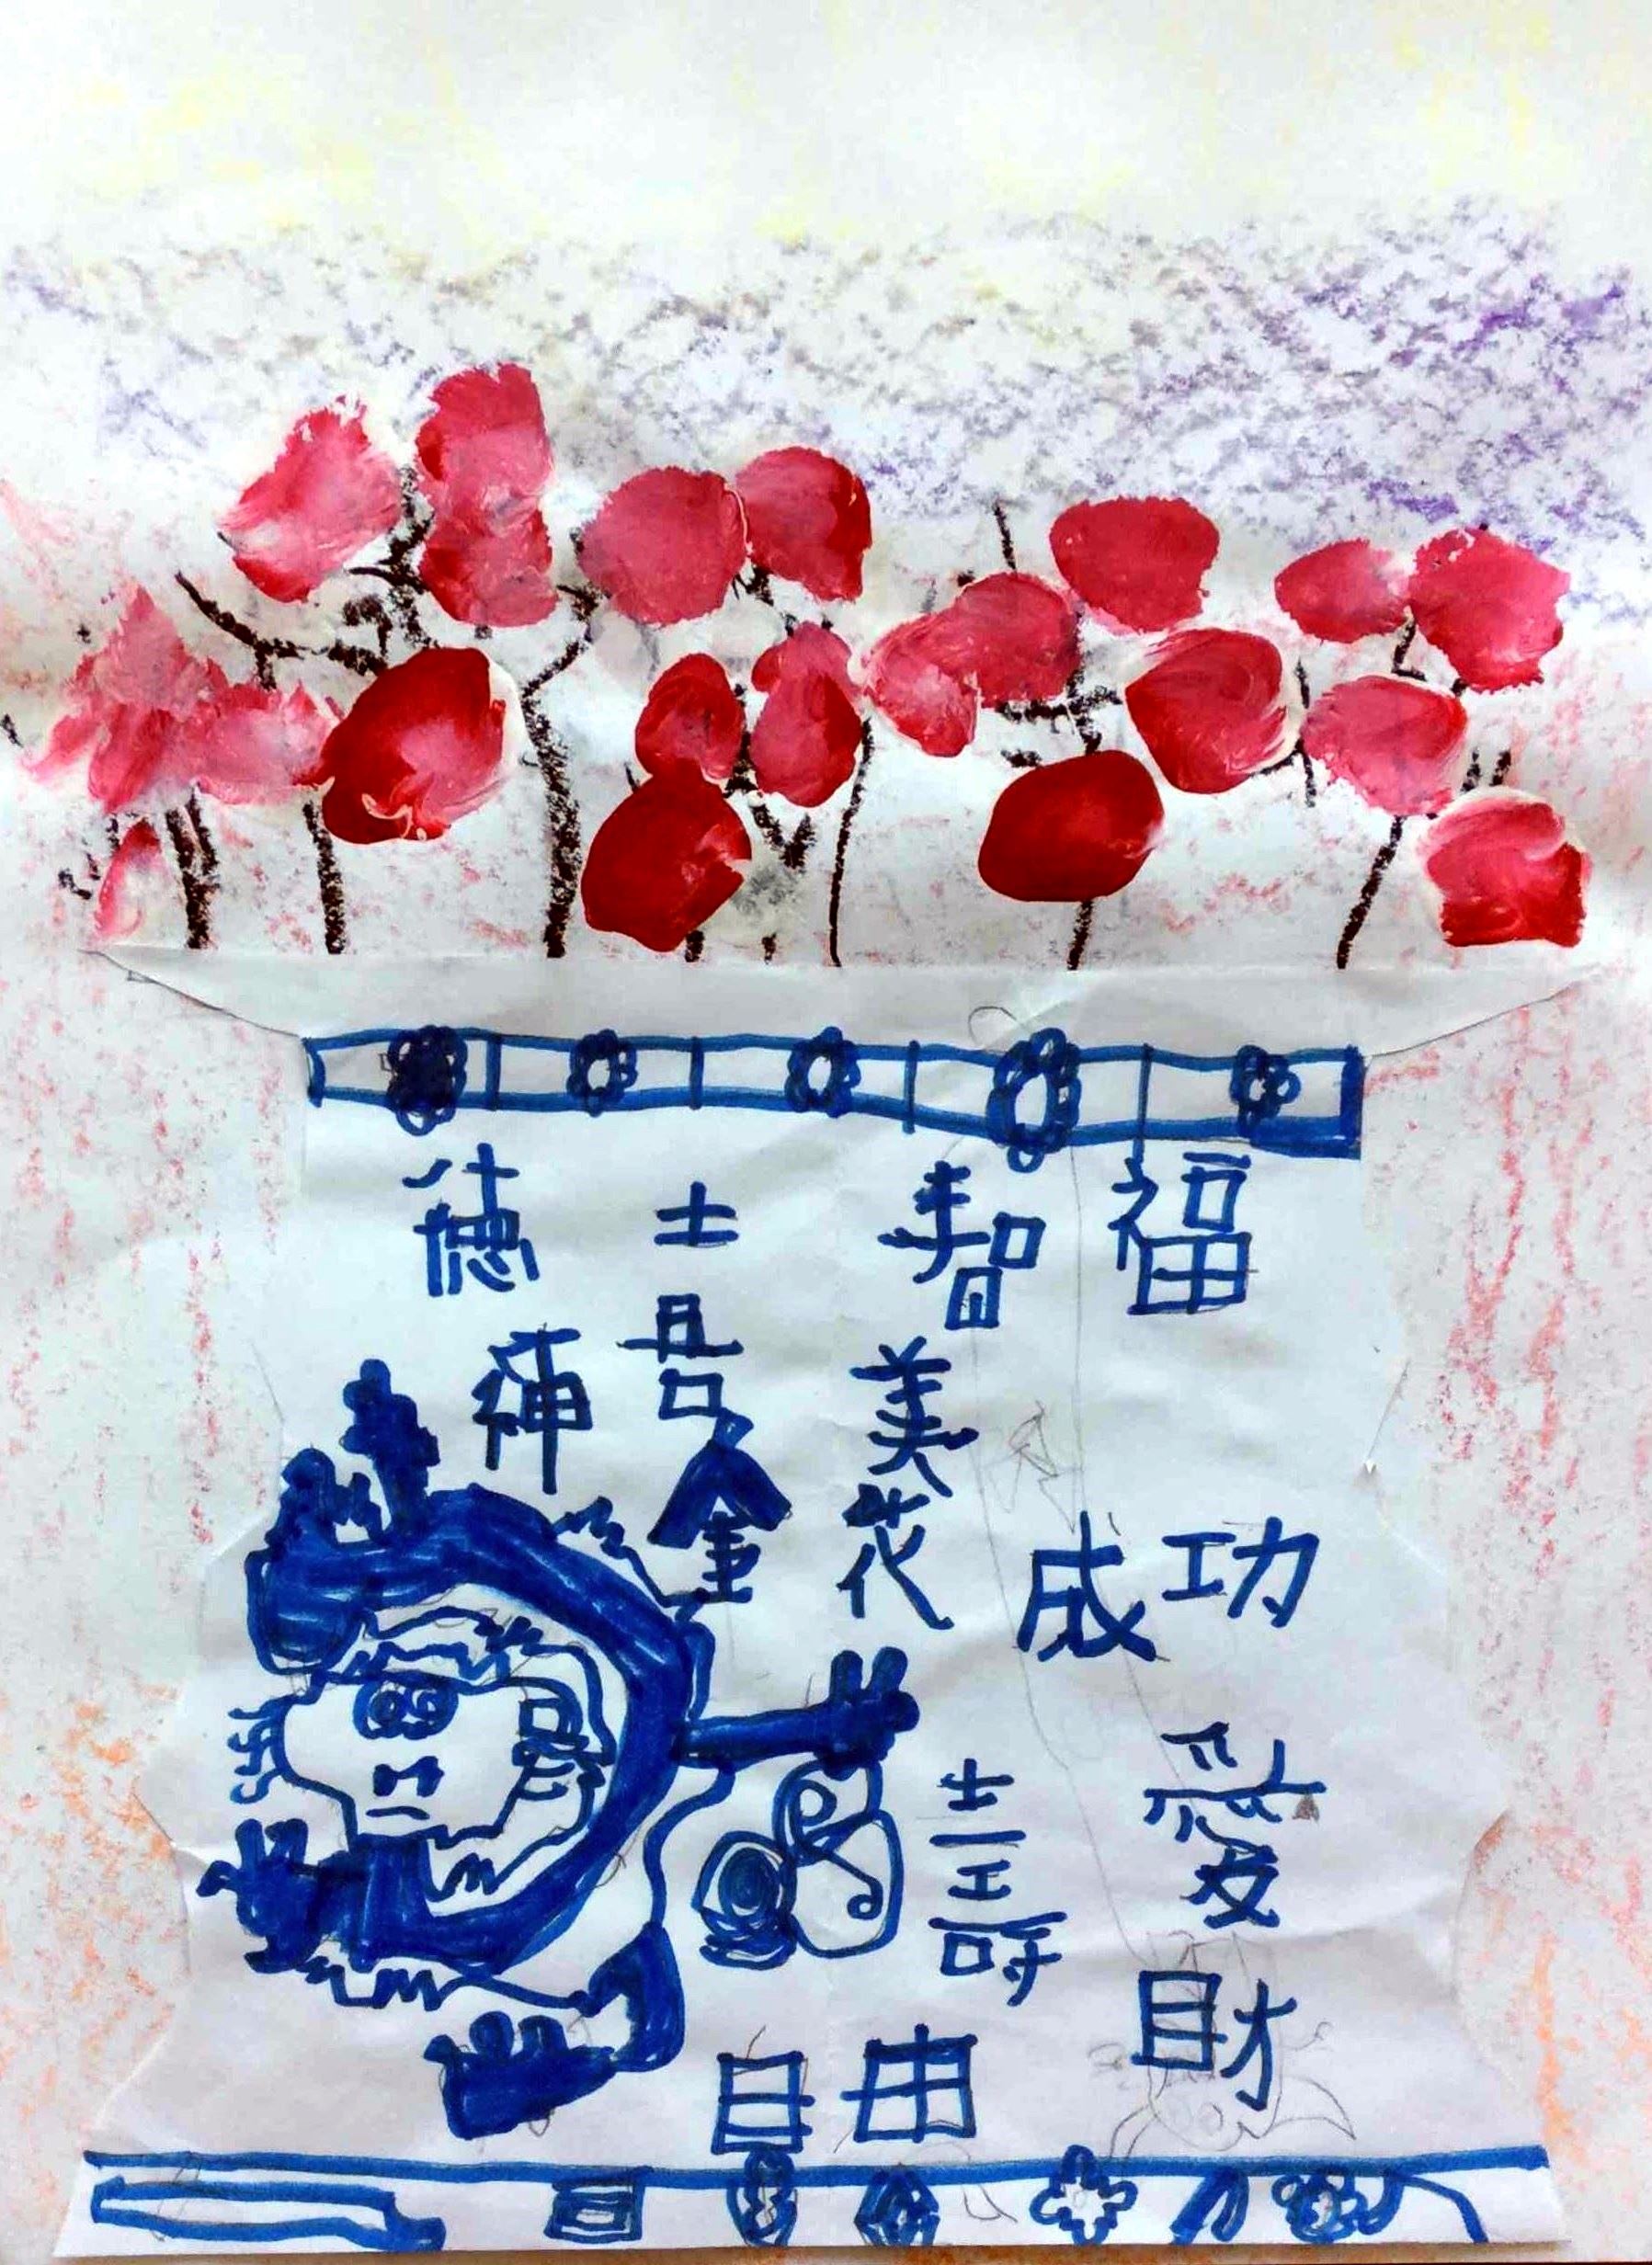 福
智
喜
德
美
花
金
成功
愛
壽
財
自由